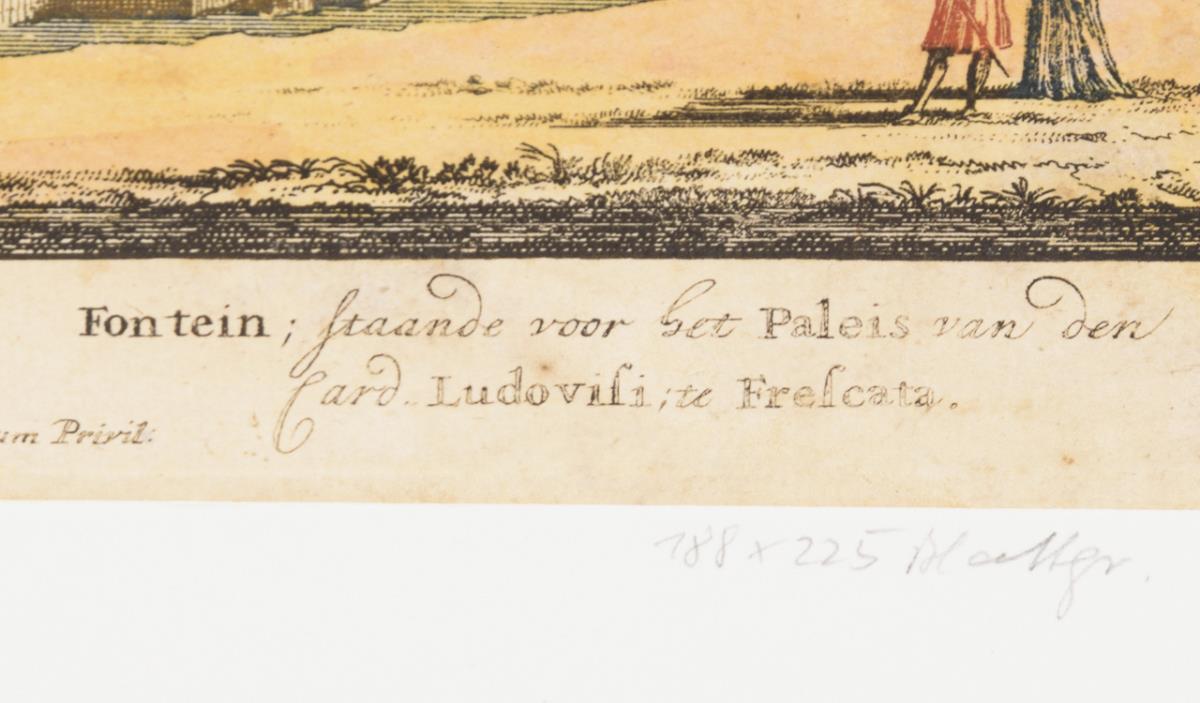 Fontein; ſtaande voor het Paleis van den
Card. Ludoviſi; te Freſcata.
um Privil:
188 x 225 Blattgr.